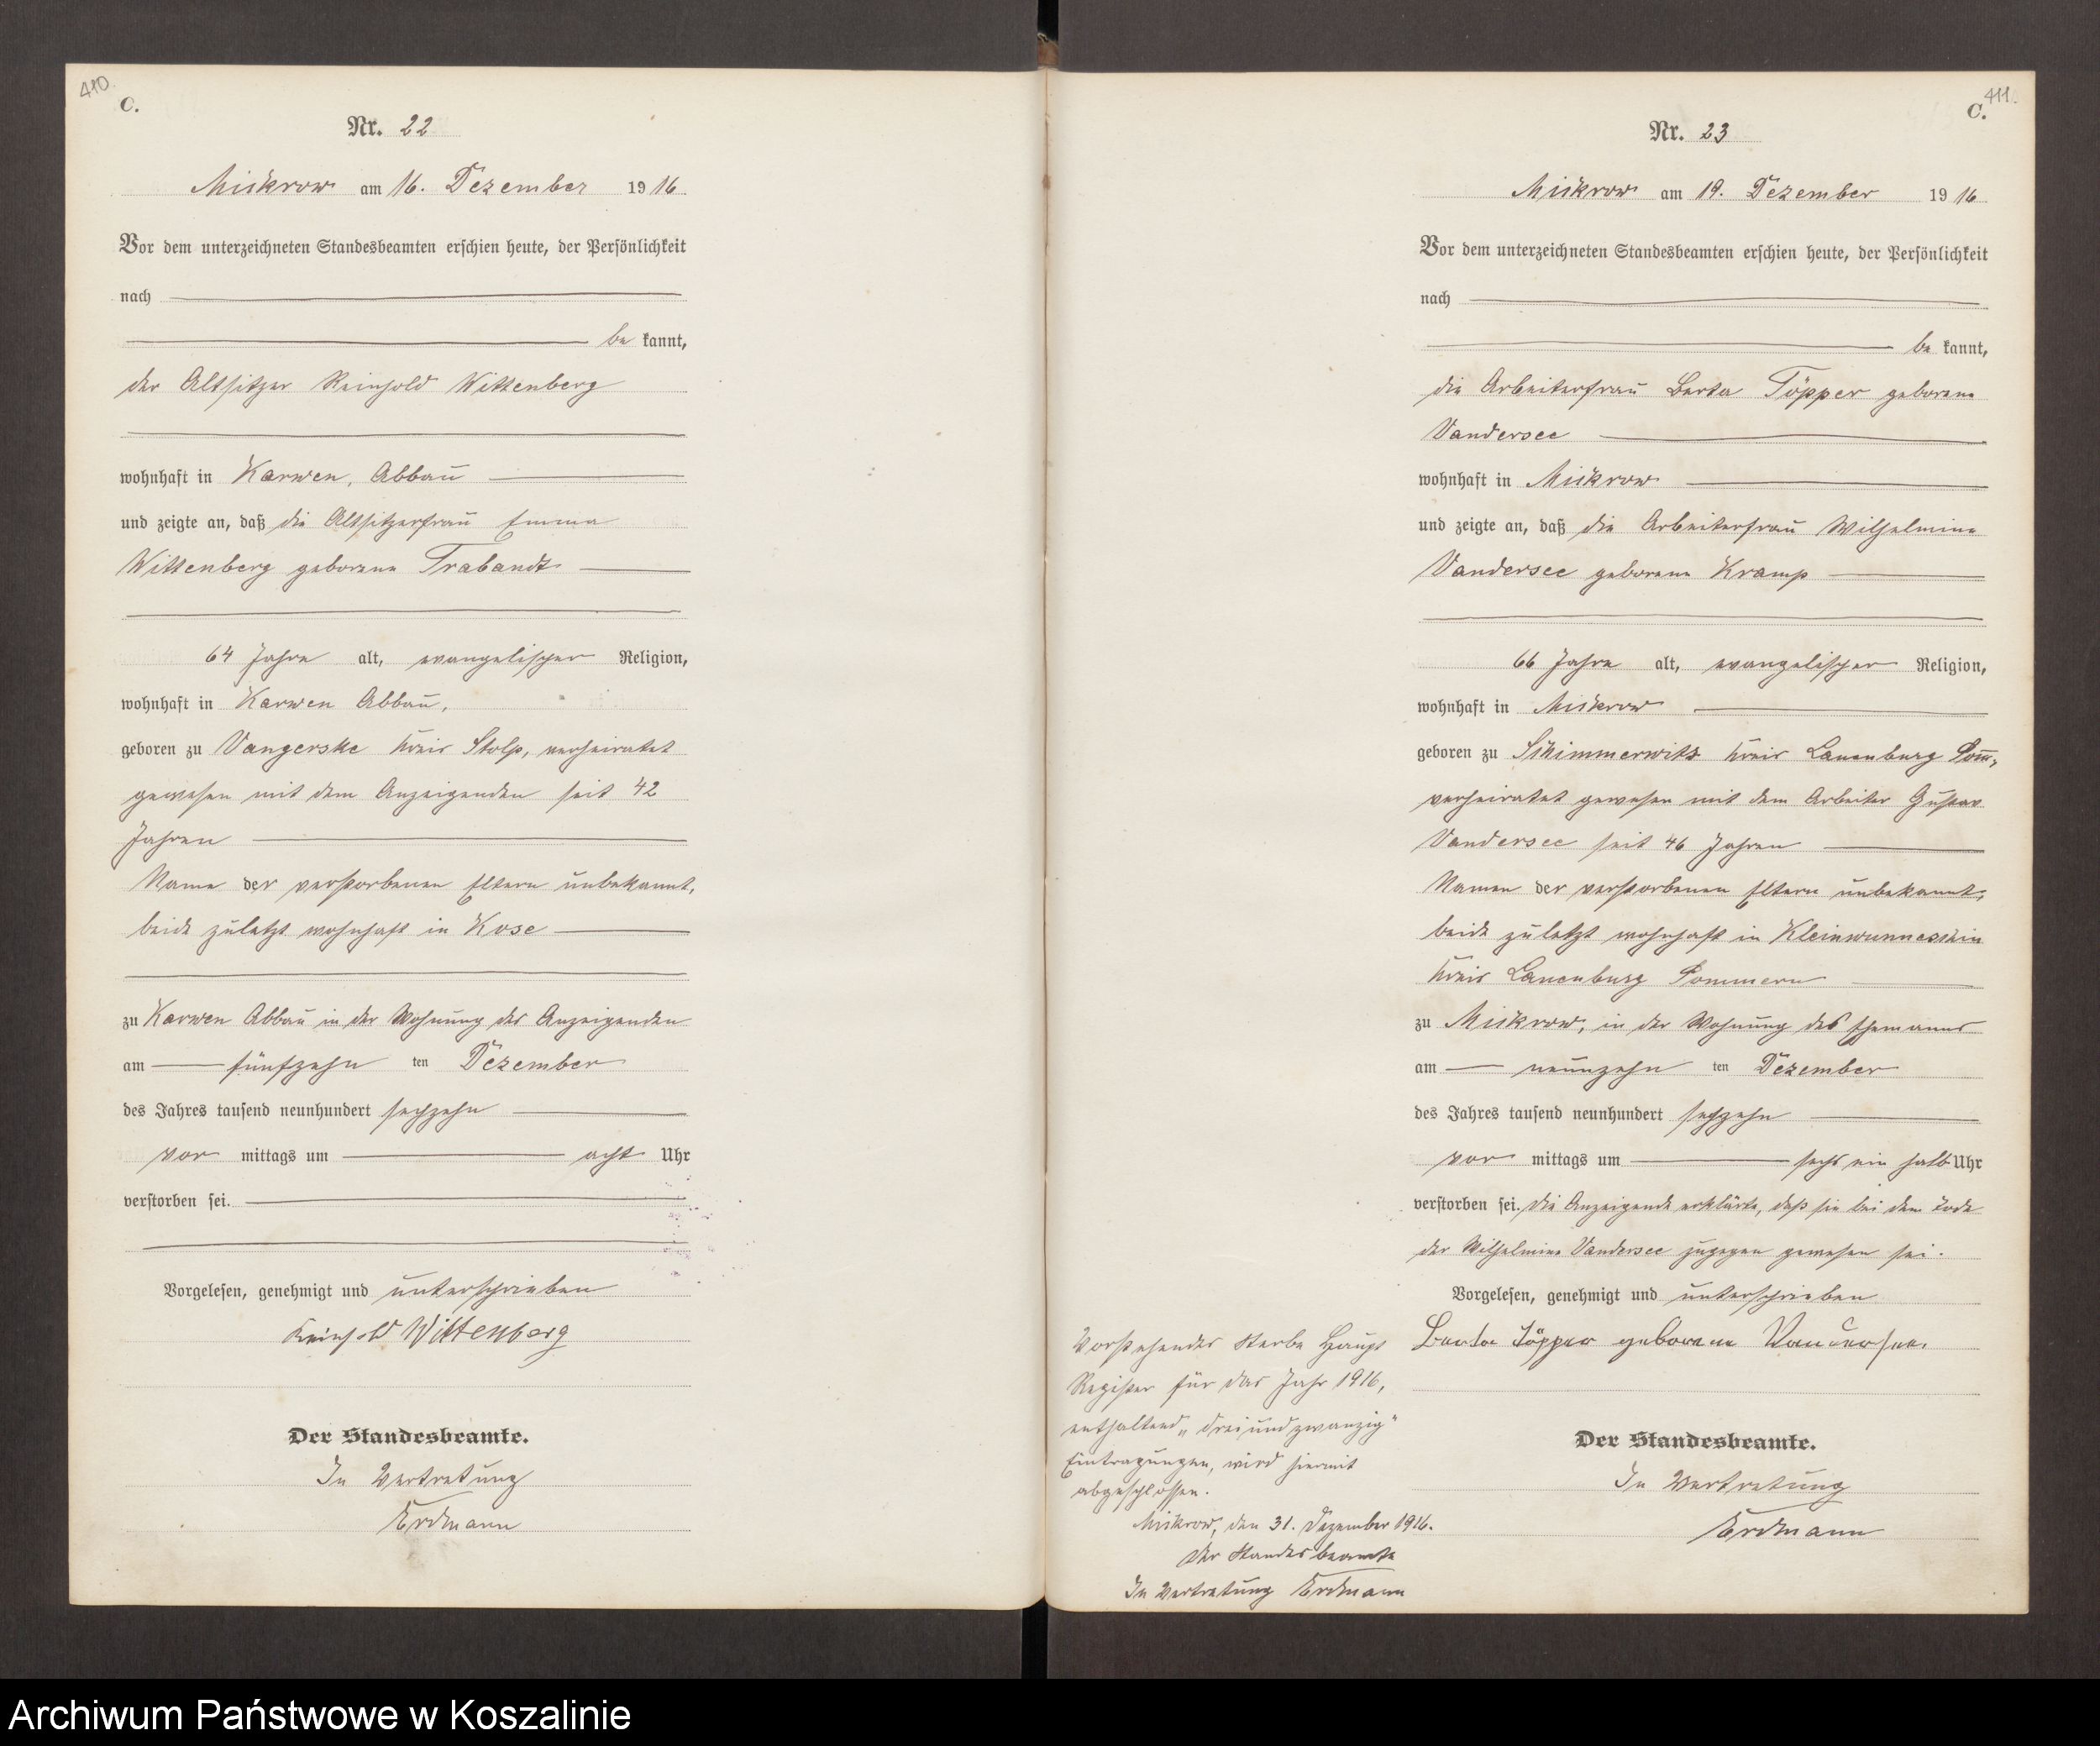 410.
C.
Nr. 22
Mickrow am 16. Dezember 1916
Vor dem unterzeichneten Standesbeamten erschien heute, der Persönlichkeit
nach
be kannt,
der Altsitzer Reinhold Wittenberg
wohnhaft in Karwen, Abbau
und zeigte an, daß die Altsitzerfrau Emma
Wittenberg geborene Trabandt
64 Jahre alt, evangelischer Religion,
wohnhaft in Karwen Abbau,
geboren zu Vangerske Kreis Stolp, verheiratet
gewesen mit dem Anzeigenden seit 42
Jahren
Name der verstorbenen Eltern unbekannt,
beide zuletzt wohnhaft in Kose
zu Karwen Abbau in der Wohnung des Anzeigenden
am fünfzehn ten Dezember
des Jahres tausend neunhundert sechzehn
vor mittags um acht Uhr
verstorben sei.
Vorgelesen, genehmigt und unterschrieben
Reinhold Wittenberg
Der Standesbeamte.
In Vertretung
Erdmann
411.
C.
Nr. 23
Mickrow am 19. Dezember 1916
Vor dem unterzeichneten Standesbeamten erschien heute, der Persönlichkeit
nach
be kannt,
die Arbeiterfrau Berta Töpper geborene
Vandersee
wohnhaft in Mickrow
und zeigte an, daß die Arbeiterfrau Wilhelmine
Vandersee geborene Kramp
66 Jahre alt, evangelischer Religion,
wohnhaft in Mickrow
geboren zu Schimmerwitz Kreis Lauenburg Pom̄,
verheiratet gewesen mit dem Arbeiter Gustav
Vandersee seit 46 Jahren
Namen der verstorbenen Eltern unbekannt,
beide zuletzt wohnhaft in Kleinwunneschin
Kreis Lauenburg Pommern
zu Mickrow, in der Wohnung des Ehemanns
am neunzehn ten Dezember
des Jahres tausend neunhundert sechzehn
vor mittags um sechs ein halb Uhr
verstorben sei. Die Anzeigende erklärte, daß sie bei dem Tode
der Wilhelmine Vandersee zugegen gewesen sei.
Vorgelesen, genehmigt und unterschrieben
Berta Töpper geborene Vandersee.
Der Standesbeamte.
In Vertretung
Erdmann
Vorstehendes Sterbe Haupt
Register für das Jahr 1916,
enthaltend „dreiundzwanzig"
Eintragungen, wird hiermit
abgeschlossen.
Mickrow, den 31. Dezember 1916.
Der Standesbeamte
In Vertretung Erdmann
Archiwum Państwowe w Koszalinie